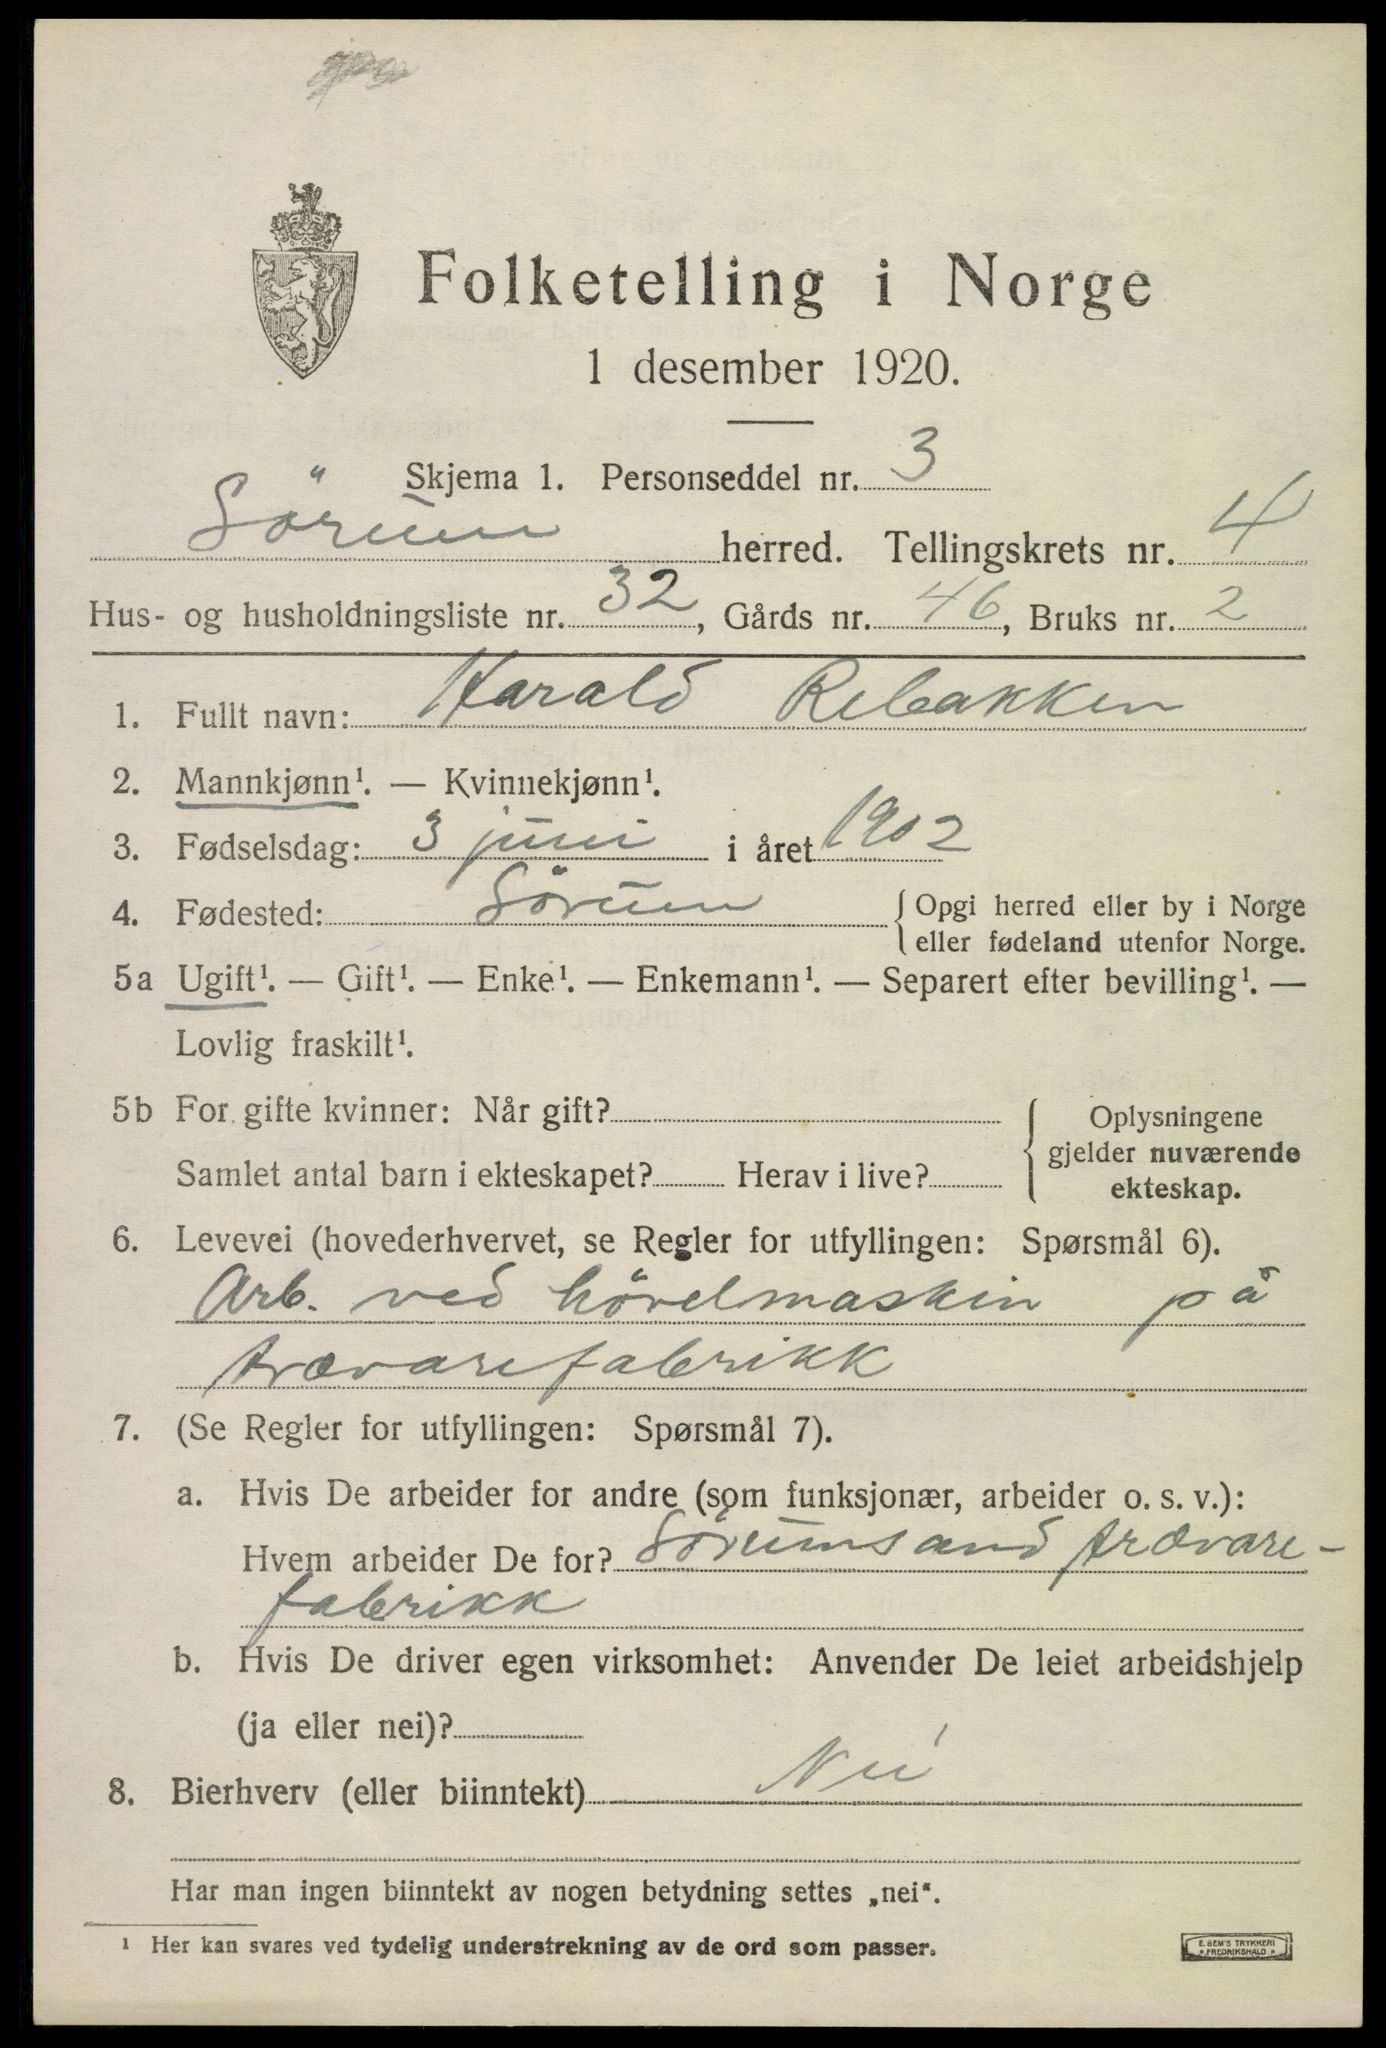 Folketelling i Norge
1 desember 1920.
Skjema 1. Personseddel nr. 3
Sörum herred. Tellingskrets nr. 4
Hus- og husholdningsliste nr. 32, Gårds nr. 46, Bruks nr. 2
1. Fullt navn: Harald Rebakken
2. Mannkjønn¹. — Kvinnekjønn¹.
3. Fødselsdag: 3 juni i året 1902
4. Fødested: Sörum { Opgi herred eller by i Norge
eller fødeland utenfor Norge.
5a Ugift¹. — Gift¹. — Enke¹. — Enkemann¹. — Separert efter bevilling¹. —
Lovlig fraskilt¹.
5b For gifte kvinner: Når gift?
Samlet antal barn i ekteskapet? Herav i live?
Oplysningene
gjelder nuværende
ekteskap.
6. Levevei (hovederhvervet, se Regler for utfyllingen: Spørsmål 6).
Arb. ved hövelmaskin på
trævarefabrikk
7. (Se Regler for utfyllingen: Spørsmål 7).
a. Hvis De arbeider for andre (som funksjonær, arbeider o. s. v.):
Hvem arbeider De for? Sörumsand trævare-
fabrikk
b. Hvis De driver egen virksomhet: Anvender De leiet arbeidshjelp
(ja eller nei)?
8. Bierhverv (eller biinntekt) Nei
Har man ingen biinntekt av nogen betydning settes „nei“.
¹ Her kan svares ved tydelig understrekning av de ord som passer.
E. SEM'S TRYKKERI
• FREDRIKSHALD •